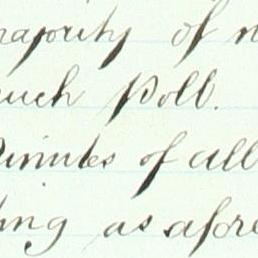 majority of
such Poll.
Minutes of all
ing as afore